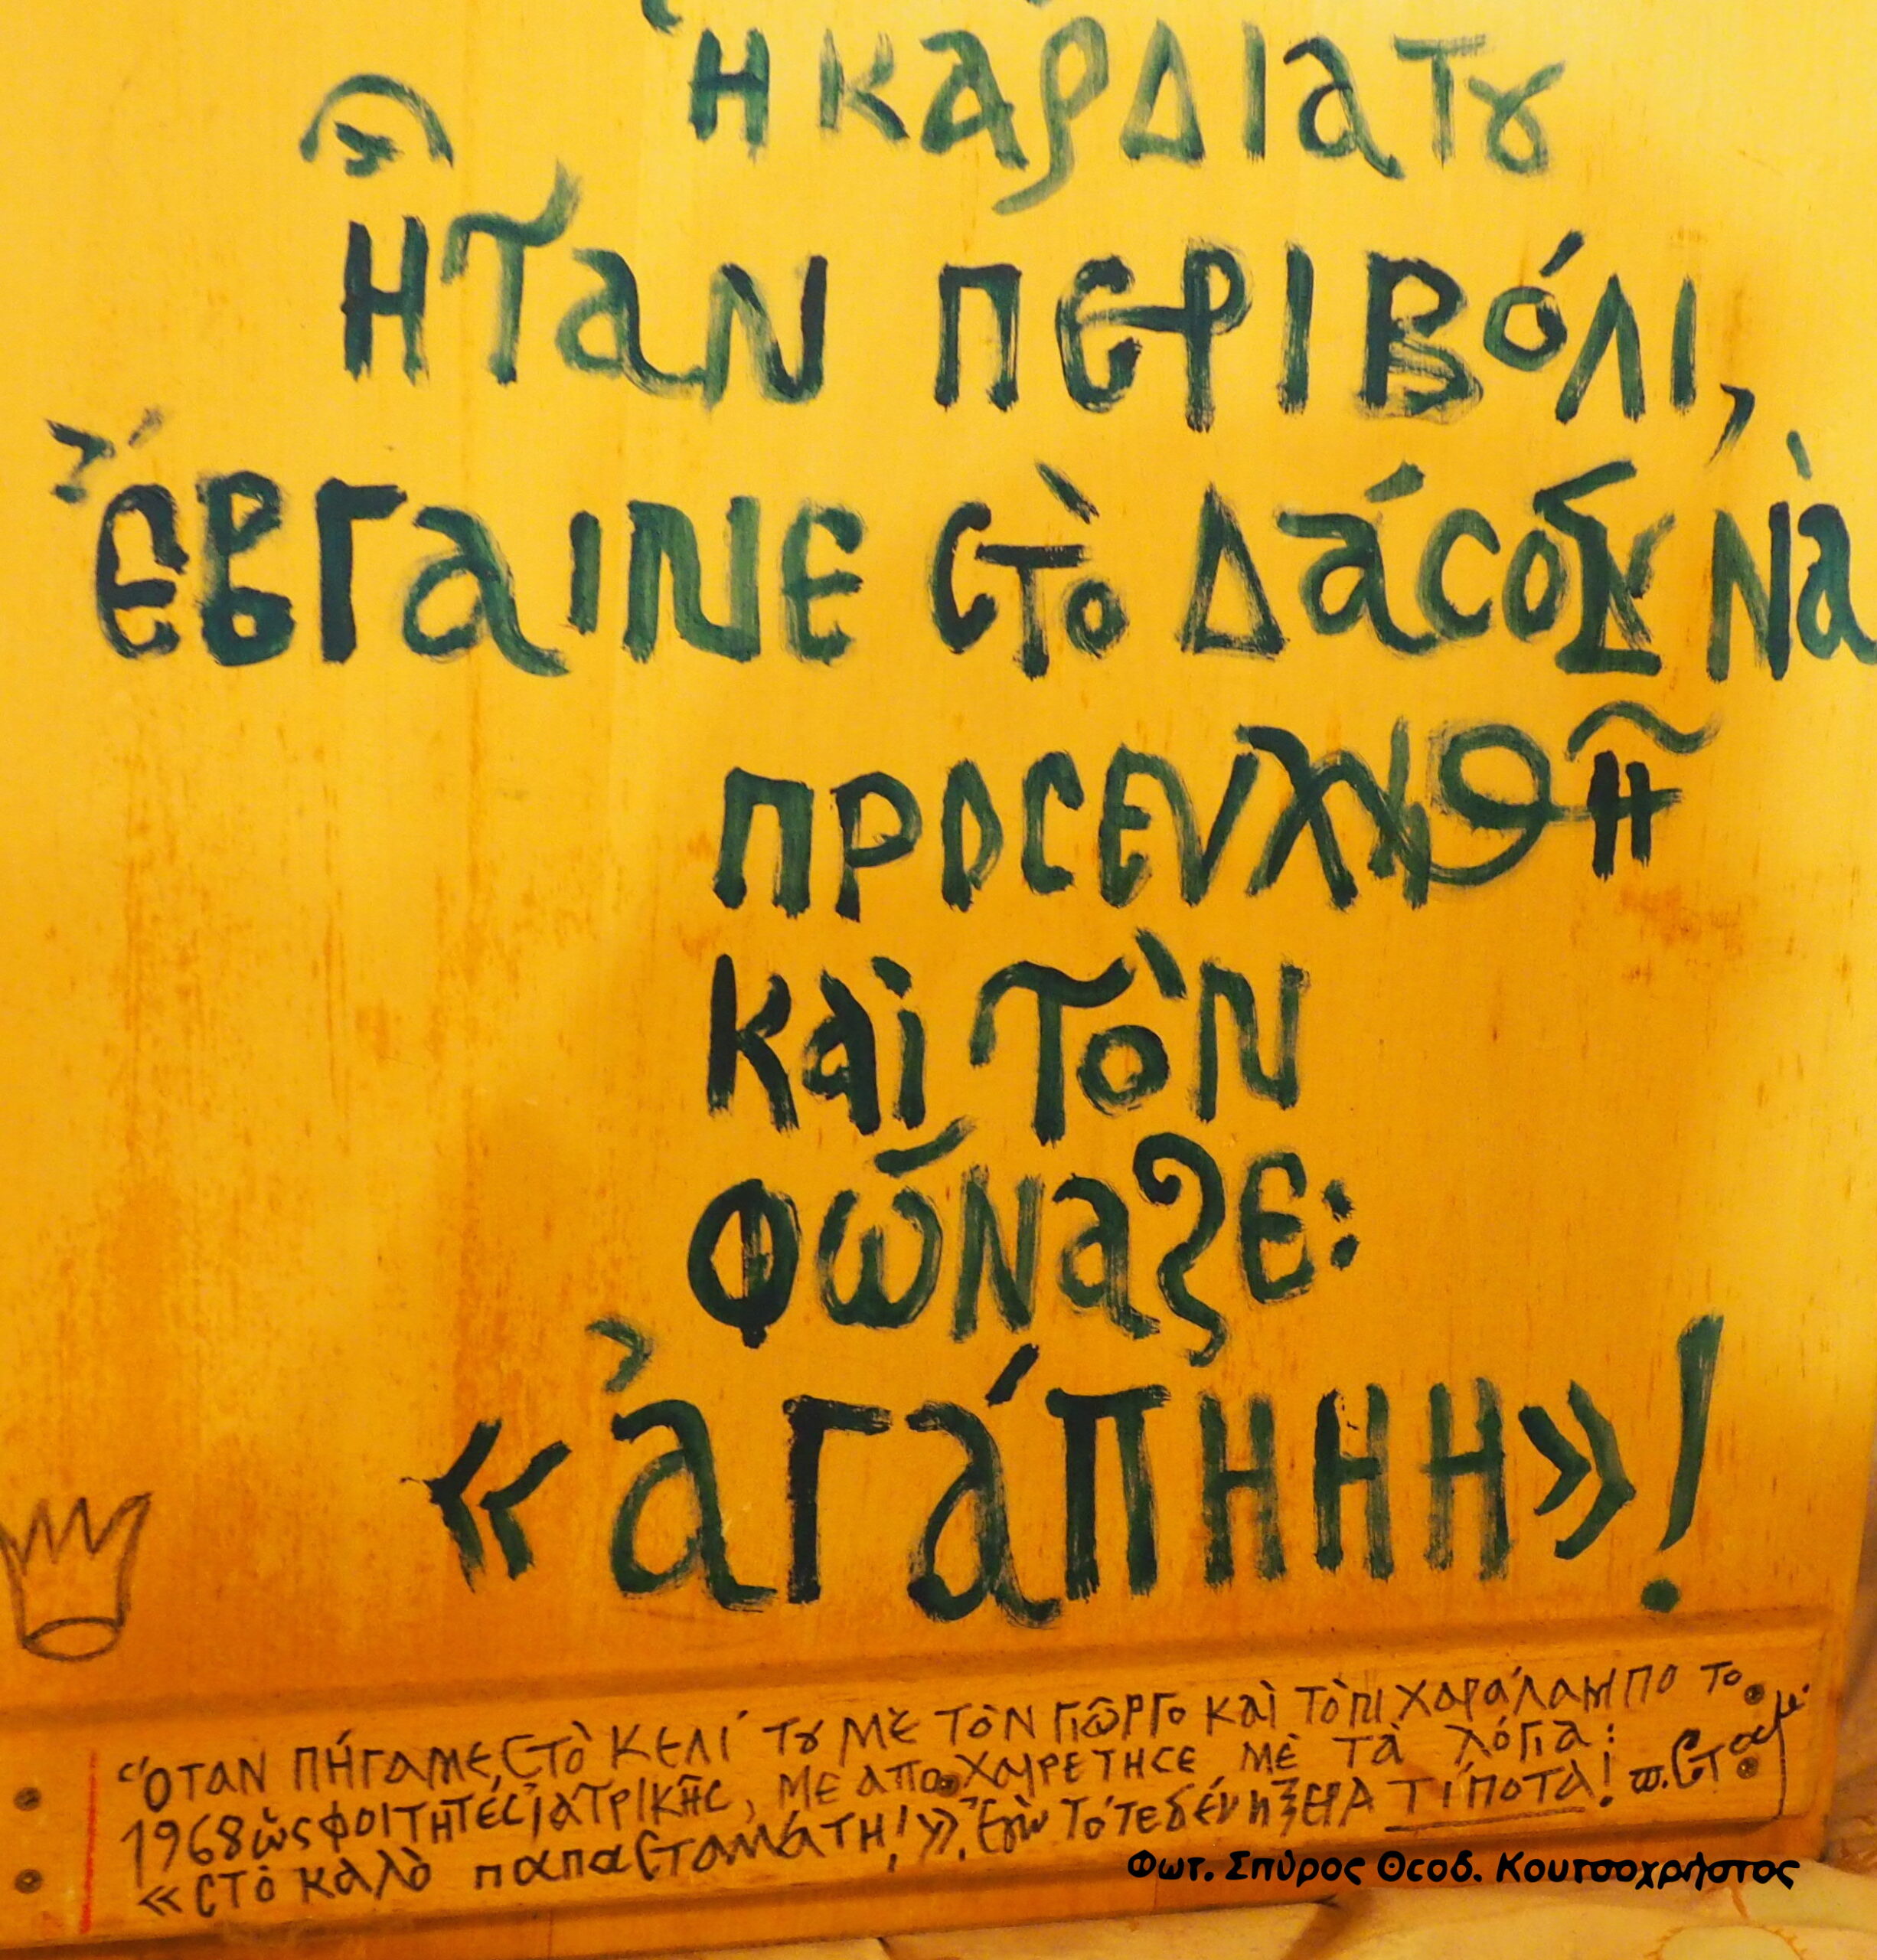 Ἡ καρδιά τȣ
ἦταν περιβόλι,
ἔβγαινε στὸ δάσος νὰ
προσευχηθῆ
καὶ τὸν
φώναξε:
«ἀγάπηηη»!
Ὅταν πήγαμε, στὸ κελί τȣ μὲ τὸν Γιῶργο καὶ τὸν Χαράλαμπο το
1968 ὡς φοιτητές ἰατρικῆς, με αποχαιρέτησε μὲ τὰ λόγια:
«στὸ καλὸ παπασταμάτη!». Ἐγὼ τότε δέν ἤξερα τίποτα! π. Σταμ.
Φωτ. Σπύρος Θεοδ. Κουτσοχρήστος